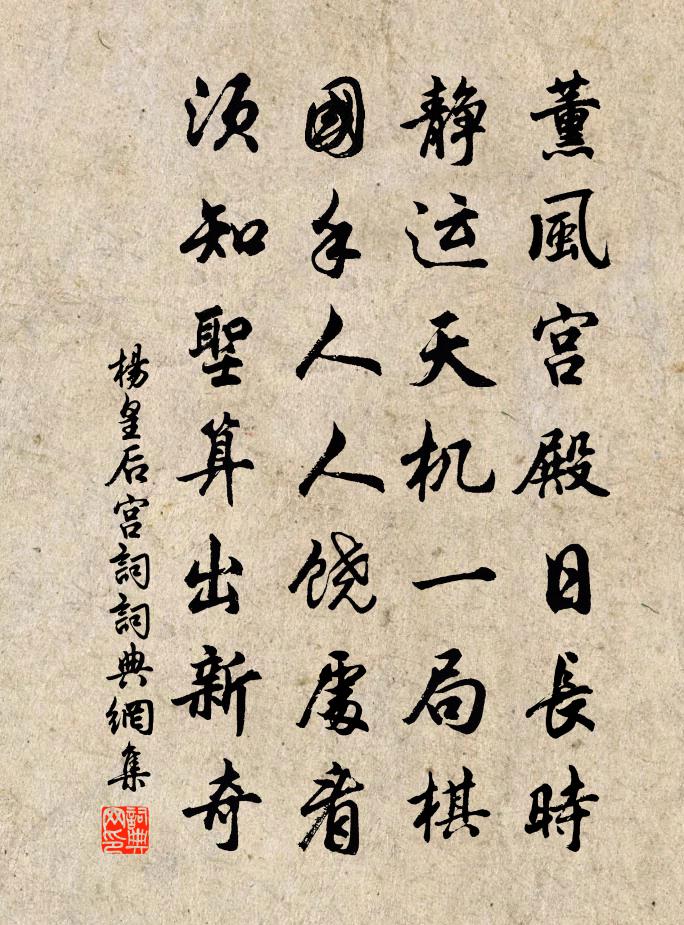 薰風宫殿日長時
静运天机一局棋
國手人人饶處看
须知聖算出新奇
楊皇后宫詞詞典網集
詞典网印